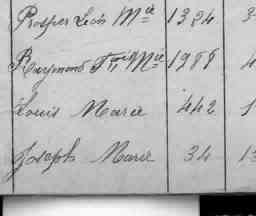 Prosper Léon Mie 1324 3
Raymond Fois Mie 1988 4
Louis Marie 442 1
Joseph Marie 34 13